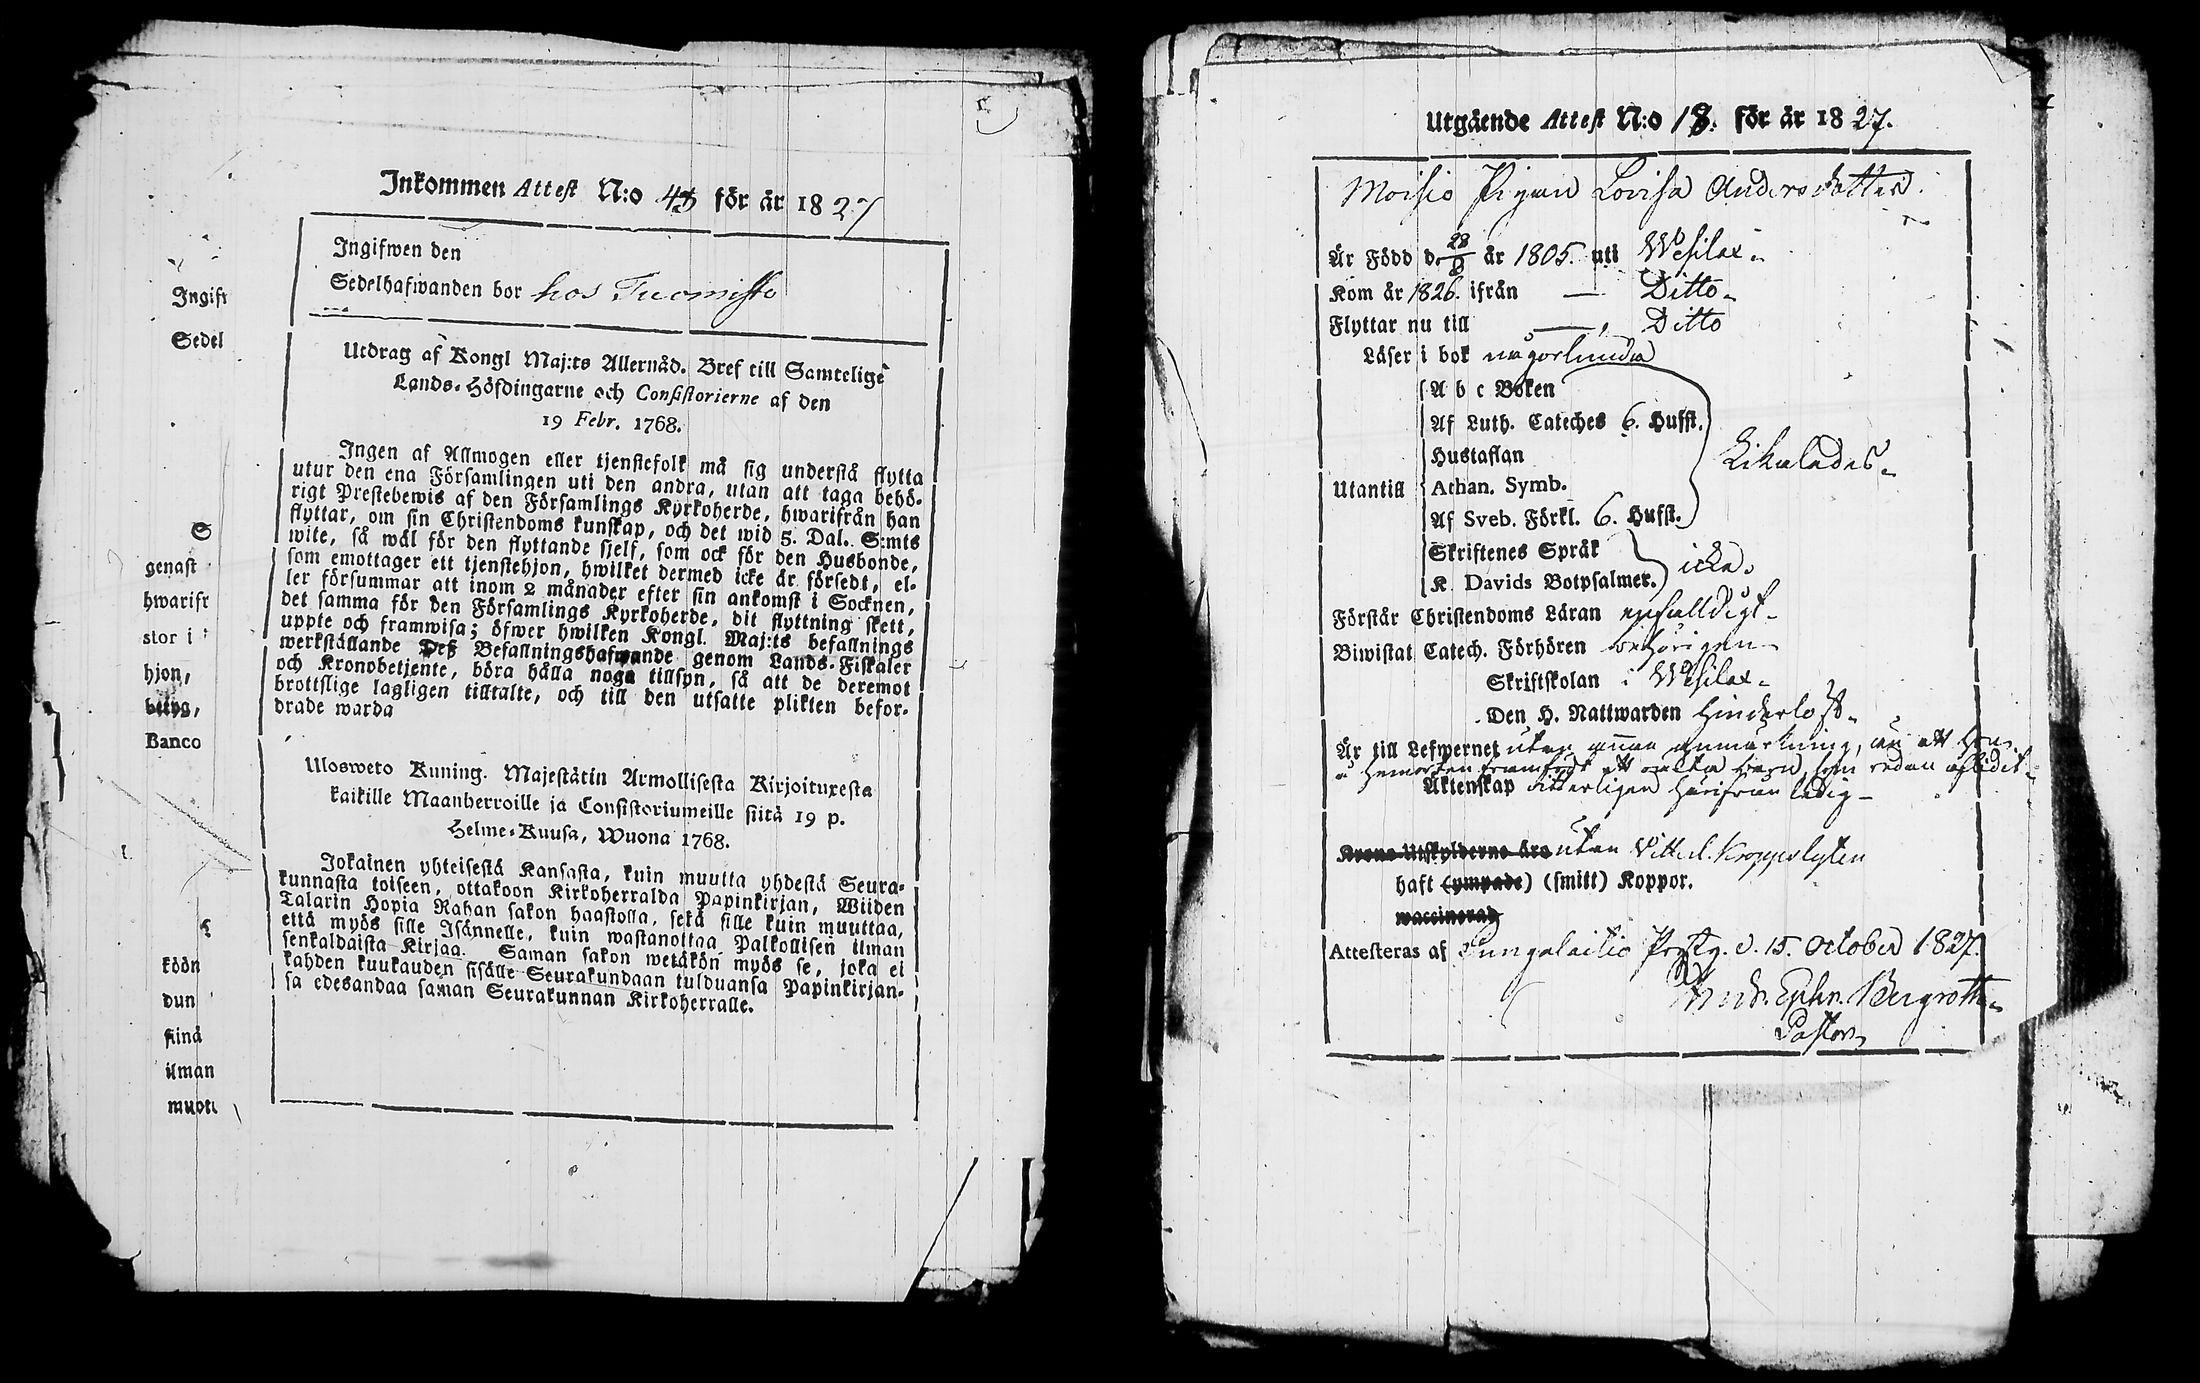 Inkommen Attest N:o 45 för år 1827
Ingifwen den
Sedelhafwanden bor hos Tuomisto
Utdrag af Kongl Maj:ts Allernåd. Bref till Samtelige
Lands-Höfdingarne och Consistorierne af den
19 Febr. 1768.
Ingen af Allmogen eller tjenstefolk må sig understå flytta
utur den ena Församlingen uti den andra, utan att taga behö-
rigt Prestebewis af den Församlings Kyrkoherde, hwarifrån han
flyttar, om sin Christendoms kunskap, och det wid 5. Dal. S:mts
wite, så wäl för den flyttande sjelf, som ock för den Husbonde,
som emottager ett tjenstehjon, hwilket dermed icke är försedt, el-
ler försummar att inom 2 månader efter sin ankomst i Socknen,
det samma för den Församlings Kyrkoherde, dit flyttning skett,
uppte och framwisa; öfwer hwilken Kongl. Maj:ts befallnings
werkställande Deß Befallningshafwande genom Lands-Fiskaler
och Kronobetjente, böra hålla noga tillsyn, så att de deremot
brottslige lagligen tilltalte, och till den utsatte plikten befor-
drade warda
Ulosweto Kuning. Majestätin Armollisesta Kirjoituxesta
kaikille Maanherroille ja Consistoriumeille siitä 19 p.
Helme-Kuusa, Wuona 1768.
Jokainen yhteisestä Kansasta, kuin muutta yhdestä Seura-
kunnasta toiseen, ottakoon Kirkoherralda Papinkirjan, Wiiden
Talarin Hopia Rahan sakon haastolla, sekä sille kuin muuttaa,
että myös sille Isännelle, kuin wastanottaa Palkollisen ilman
senkaldaista Kirjaa. Saman sakon wetäkön myös se, joka ei
kahden kuukauden sisälle Seurakundaan tulduansa Papinkirjan-
sa edesandaa saman Seurakunnan Kirkoherralle.
Ingift
Sedel
S
genast
hwarifr
stor i
hjon,
betyg,
Banco
köön
dun
siinä
ilman
muott
Utgående Attest N:o 18. för år 1827.
Moisio Pigan Lovisa Andersdotter.
Är Född d. 28/8 år 1805. uti Wesilax.
Kom år 1826. ifrån — Ditto.
Flyttar nu till — Ditto
Läser i bok någorlunda
A b c Boken
Af Luth. Cateches 6. Hufst.
Hustaflan
Utantill Athan. Symb. Likaledes.
Af Sveb. Förkl. 6. Hufst.
Skriftenes Språk
K. Davids Botpsalmer. icke.
Förstår Christendoms Läran enfalldigt.
Biwistat Catech. Förhören behörigen
Skriftskolan i Wesilax.
Den H. Nattwarden Hinderlöst.
Är till Lefwernet utan annan anmärkning, än att Hon
framfödt ett oäkta barn, som redan aflidit.
Äktenskap härifrån ledig
Krono-Utskylderne äro utan Vitterl. Kroppslyten
haft (ympade) (smitt) Koppor.
waccinerad
Attesteras af Pungalaitio Prestg. d. 15. October 1827.
And. Ephr. Bergroth.
Pastor